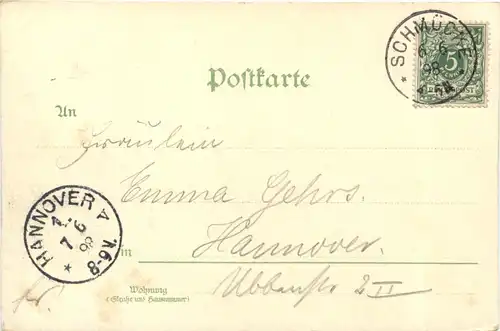 SCHMÜCKE
6 6
98
5
REICHSPOST
Postkarte
An
Fräulein
Emma Gehrs.
HANNOVER
7 6
98
8-9V.
Hannover.
in
Wohnung
(Straße und Hausnummer)